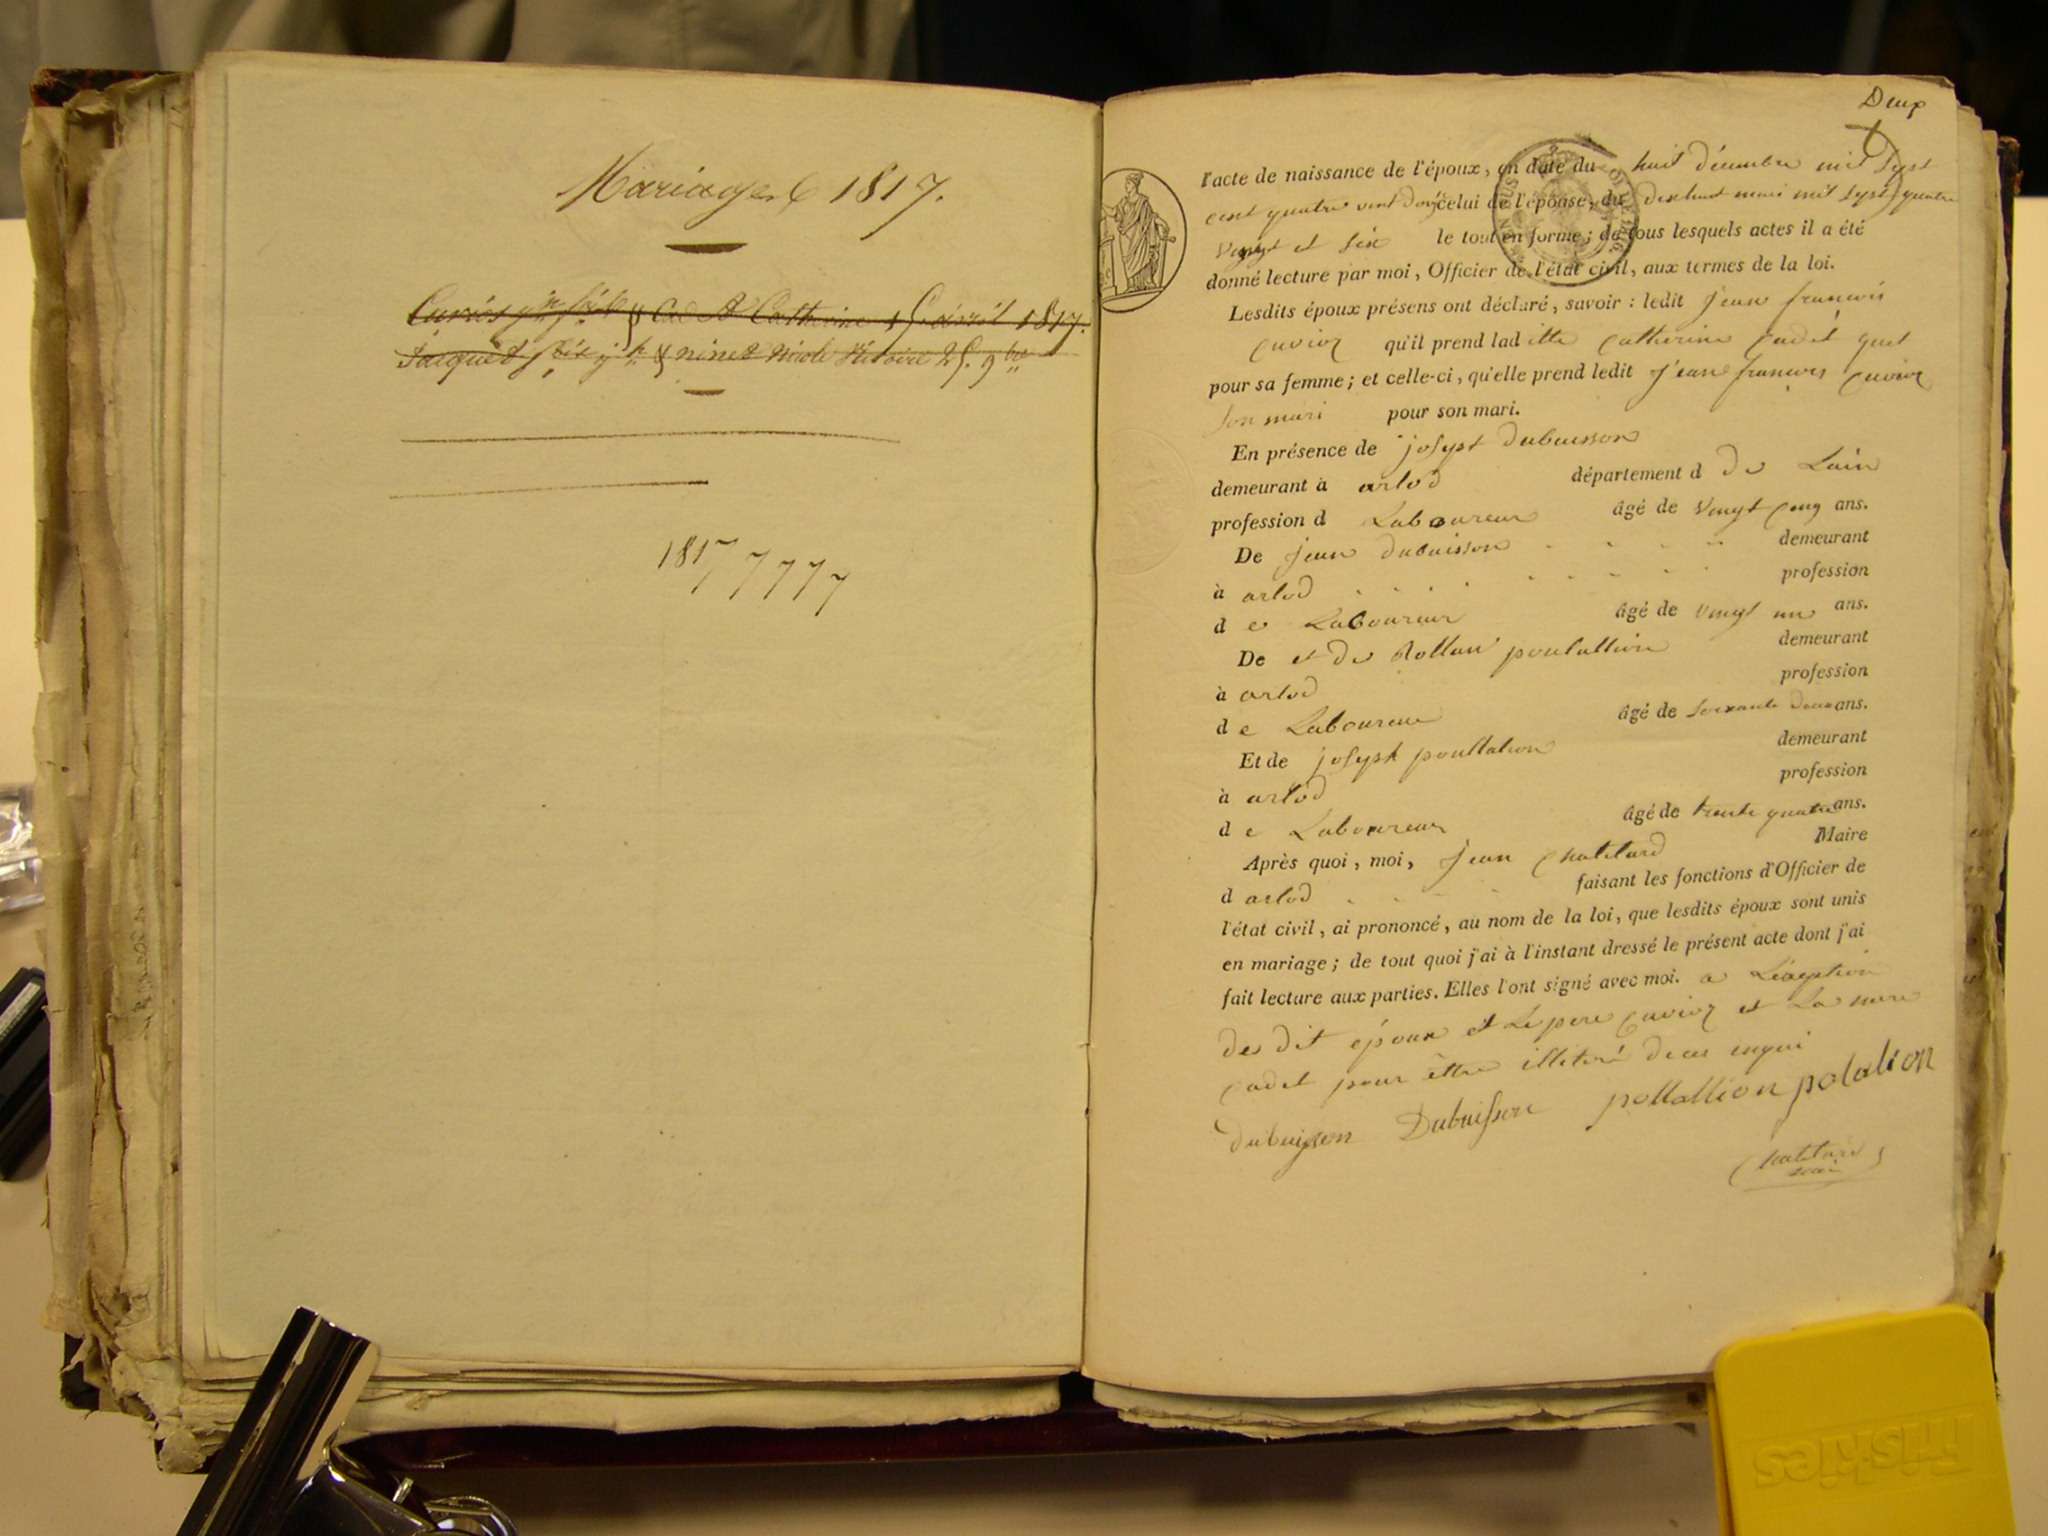 Mariages 1817.
Cuvier jn fois & Cadet Catherine 15 avril 1817.
Jacquet & ninet nicole Victoire 25. 9bre
1817 7 7 7 7
Deux
l'acte de naissance de l'époux, en date du huit décembre mil sept
cent quatre vent douze celui de l'épouse, du dixhuit mars mil sept quatre
vengt et six le tout en forme; de tous lesquels actes il a été
donné lecture par moi, Officier de l'état civil, aux termes de la loi.
Lesdits époux présens ont déclaré, savoir : ledit jean francois
cuvier qu'il prend lad itte catherine cadet
pour sa femme; et celle-ci, qu'elle prend ledit jean francois cuvier
son mari pour son mari.
En présence de joseph dubuisson
demeurant à arlod département d de Lain
profession d Laboureur âgé de vengt cinq ans.
De jean dubuisson demeurant
à arlod profession
d e Laboureur âgé de vengt un ans.
De et de Rollan poulallion demeurant
à arlod profession
d e Laboureur âgé de soixante deux ans.
Et de joseph poullalion demeurant
à arlod profession
d e Laboureur âgé de trente quatre ans.
Après quoi, moi, jean chatelard Maire
d arlod faisant les fonctions d'Officier de
l'état civil, ai prononcé, au nom de la loi, que lesdits époux sont unis
en mariage; de tout quoi j'ai à l'instant dressé le présent acte dont j'ai
fait lecture aux parties. Elles l'ont signé avec moi. a Léxeption
des dit époux et Le pere cuvier et La mere
cadet pour être illiteré de ce enquis
dubuisson Dubuisson pollallion polalion
chatelard
maire
Friskies